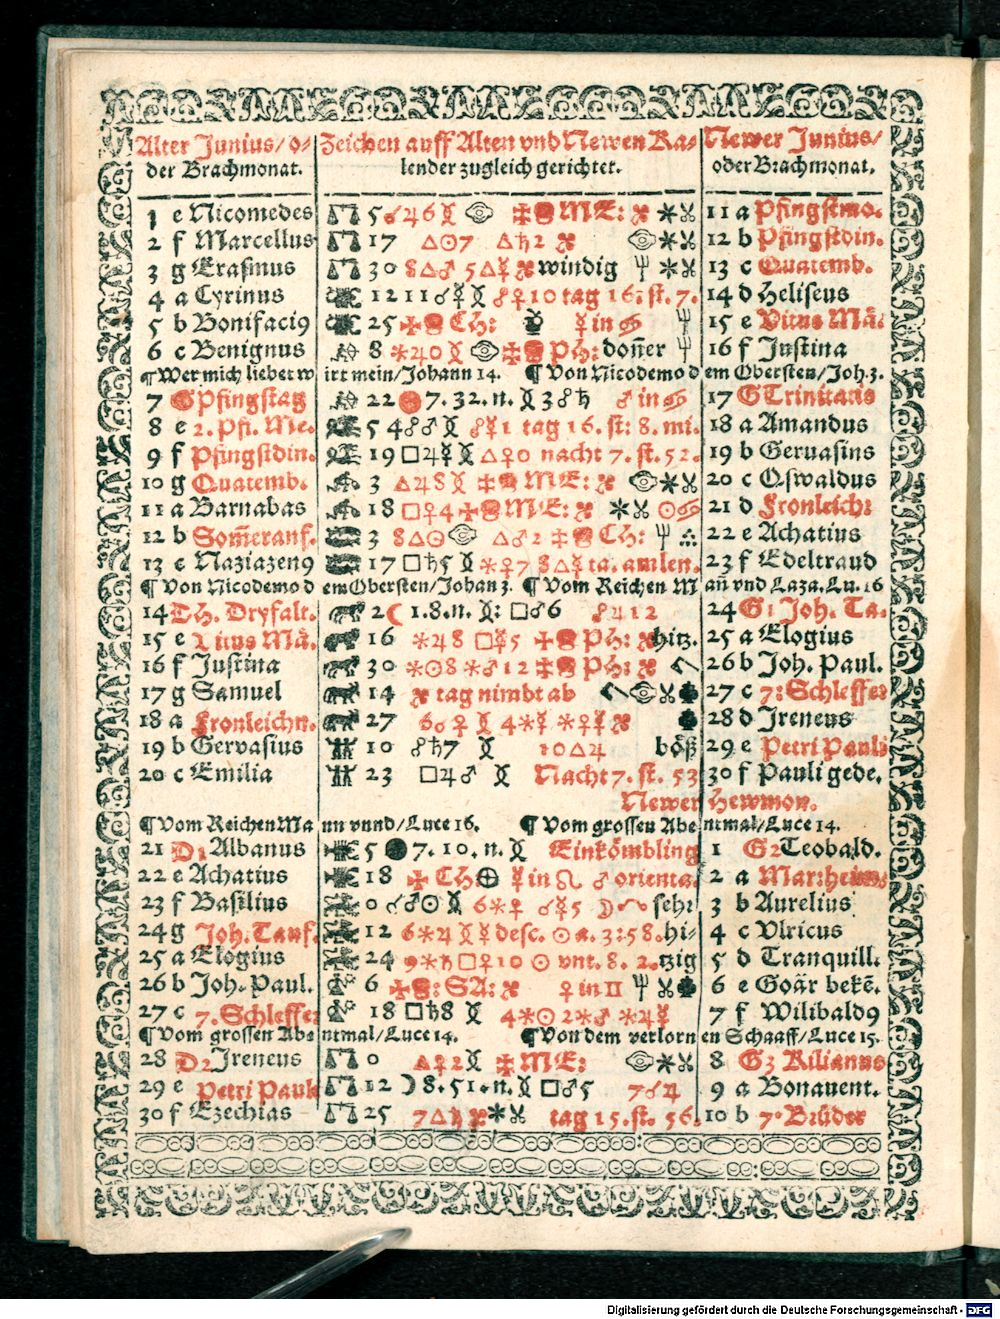 Alter Junius/ o- Zeichen auff Alten vnd Newen Ka- Newer Junius/
der Brachmonat. lender zugleich gerichtet. oder Brachmonat.
1 e Nicomedes ♎ 5 ☌ ♃ 6 ☿ ME: ✶ 11 a Pfingstmo.
2 f Marcellus ♎ 17 △☉7 △♄2 ✶ 12 b Pfingstdin.
3 g Erasmus ♎ 30 8△♂ 5△☿ windig ✶ 13 c Quatemb.
4 a Cyrinus ♏ 12 11☌☿ ☍♀10 tag 16: st. 7. 14 d Heliseus
5 b Bonifaci9 ♏ 25 CH: ☿ in ♋ 15 e Vitus Mä:
6 c Benignus ♐ 8 ✶♃0 PH: doñer 16 f Justina
¶ Wer mich liebet wirt mein/Johann 14. ¶ Von Nicodemo dem Obersten/Joh. 3.
7 G Pfingstag ♐ 22 7. 32. n. 3☍♄ ♂ in ♋ 17 G Trinitatis
8 e 2. Pfi. Me. ♑ 5 4☍♂ ☍☿1 tag 16. st: 8. mi. 18 a Amandus
9 f Pfingstdin. ♑ 19 □♃☿ △♀0 nacht 7. st. 52. 19 b Geruasius
10 g Quatemb. ♒ 3 △♃8 ME: ✶ 20 c Oswaldus
11 a Barnabas ♒ 18 □♀4 ME: ✶ ☉♋ 21 d Fronleich:
12 b Som̃eranf. ♓ 3 8△☉ △♂2 CH: 22 e Achatius
13 c Naziazen9 ♓ 17 □♄5 ✶♀7 8△☿ ta. am len. 23 f Edeltraud
¶ Von Nicodemo dem Obersten/Johan 3. ¶ Vom Reichen Mañ vnd Laza. Lu. 16
14 D H. Dryfalt. ♈ 2 ☾ 1. 8. n. □♂6 ☍♃12 24 G1 Joh. Ta.
15 e Vitus Mä. ♈ 16 ✶♃8 □☿5 PH: hitz. 25 a Elogius
16 f Justina ♉ 30 ✶☉8 ✶♂12 PH: 26 b Joh. Paul.
17 g Samuel ♉ 14 tag nimbt ab 27 c 7: Schleffer
18 a Fronleichn. ♉ 27 6☌♀ 4✶☿ ✶♀☿ 28 d Ireneus
19 b Gervasius ♊ 10 ☍♄7 10△♃ böß 29 e Petri Pauli
20 c Emilia ♊ 23 □♃♂ Nacht 7. st. 53 30 f Pauli gede.
Newer Hewmon.
¶ Vom Reichen Mann vnnd/Luce 16. ¶ Vom grossen Abentmal/Luce 14.
21 D1 Albanus ♋ 5 ● 7. 10. n. Einkömbling 1 G2 Teobald.
22 e Achatius ♋ 18 CH: ⊕ ☿ in ♌ ♂ orienta. 2 a Mar: heims:
23 f Basilius ♌ 0 ☌♂☉ 6✶♀ ☌☿5 sehr 3 b Aurelius
24 g Joh. Tauf. ♌ 12 6✶♃ ☿ desc. ☉ a. 3:58. hi- 4 c Vlricus
25 a Elogius ♌ 24 9✶♄ □♀10 ☉ vnt. 8. 2. tzig 5 d Tranquill.
26 b Joh. Paul. ♍ 6 SA: ♀ in ♊ 6 e Goär bekẽ.
27 c 7. Schleffer ♍ 18 □♄8 4✶☉ 2✶♂ ✶♃☿ 7 f Wilibald9
¶ Vom grossen Abentmal/Luce 14. ¶ Von dem verlornen Schaaff/Luce 15.
28 D2 Ireneus ♎ 0 △♀2 ME: 8 G3 Kilianus
29 e Petri Pauli ♎ 12 ☽ 8. 51. n. □♂5 7☌♃ 9 a Bonauent.
30 f Ezechias ♎ 25 7△♄ tag 15. st. 56. 10 b 7. Brüder
Digitalisierung gefördert durch die Deutsche Forschungsgemeinschaft - DFG